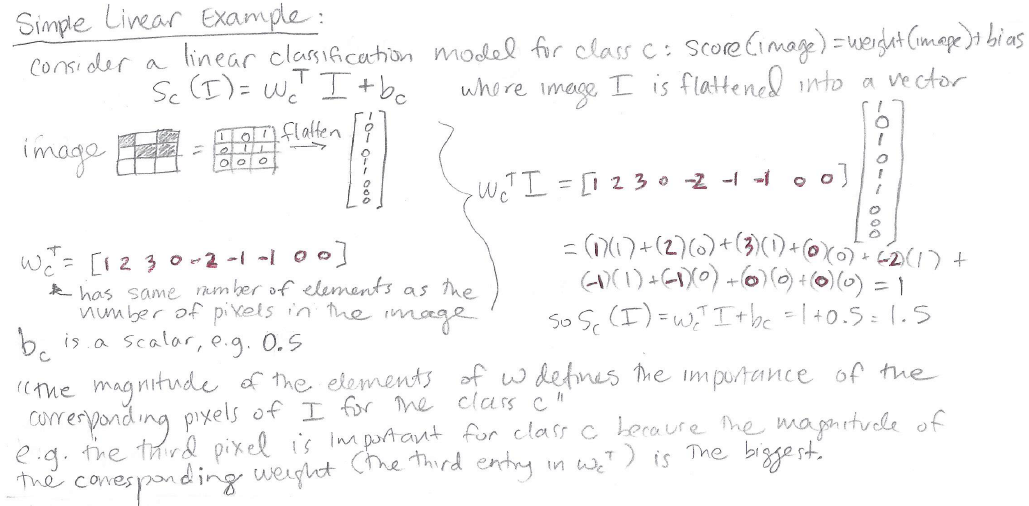 Simple Linear Example:
consider a linear classification model for class c: score(image) = weight(image) + bias
S_c (I) = w_c^T I + b_c where image I is flattened into a vector
image = [1 0 1 / 0 1 1 / 0 0 0] flatten → [1 0 1 0 1 1 0 0 0]
w_c^T I = [1 2 3 0 -2 -1 -1 0 0] [1 0 1 0 1 1 0 0 0]
= (1)(1)+(2)(0)+(3)(1)+(0)(0)+(-2)(1)+
(-1)(1)+(-1)(0)+(0)(0)+(0)(0) = 1
so S_c (I) = w_c^T I + b_c = 1+0.5 = 1.5
w_c^T = [1 2 3 0 -2 -1 -1 0 0]
has same number of elements as the
number of pixels in the image
b_c is a scalar, e.g. 0.5
"the magnitude of the elements of w defines the importance of the
corresponding pixels of I for the class c"
e.g. the third pixel is important for class c because the magnitude of
the corresponding weight (the third entry in w_c^T) is the biggest.